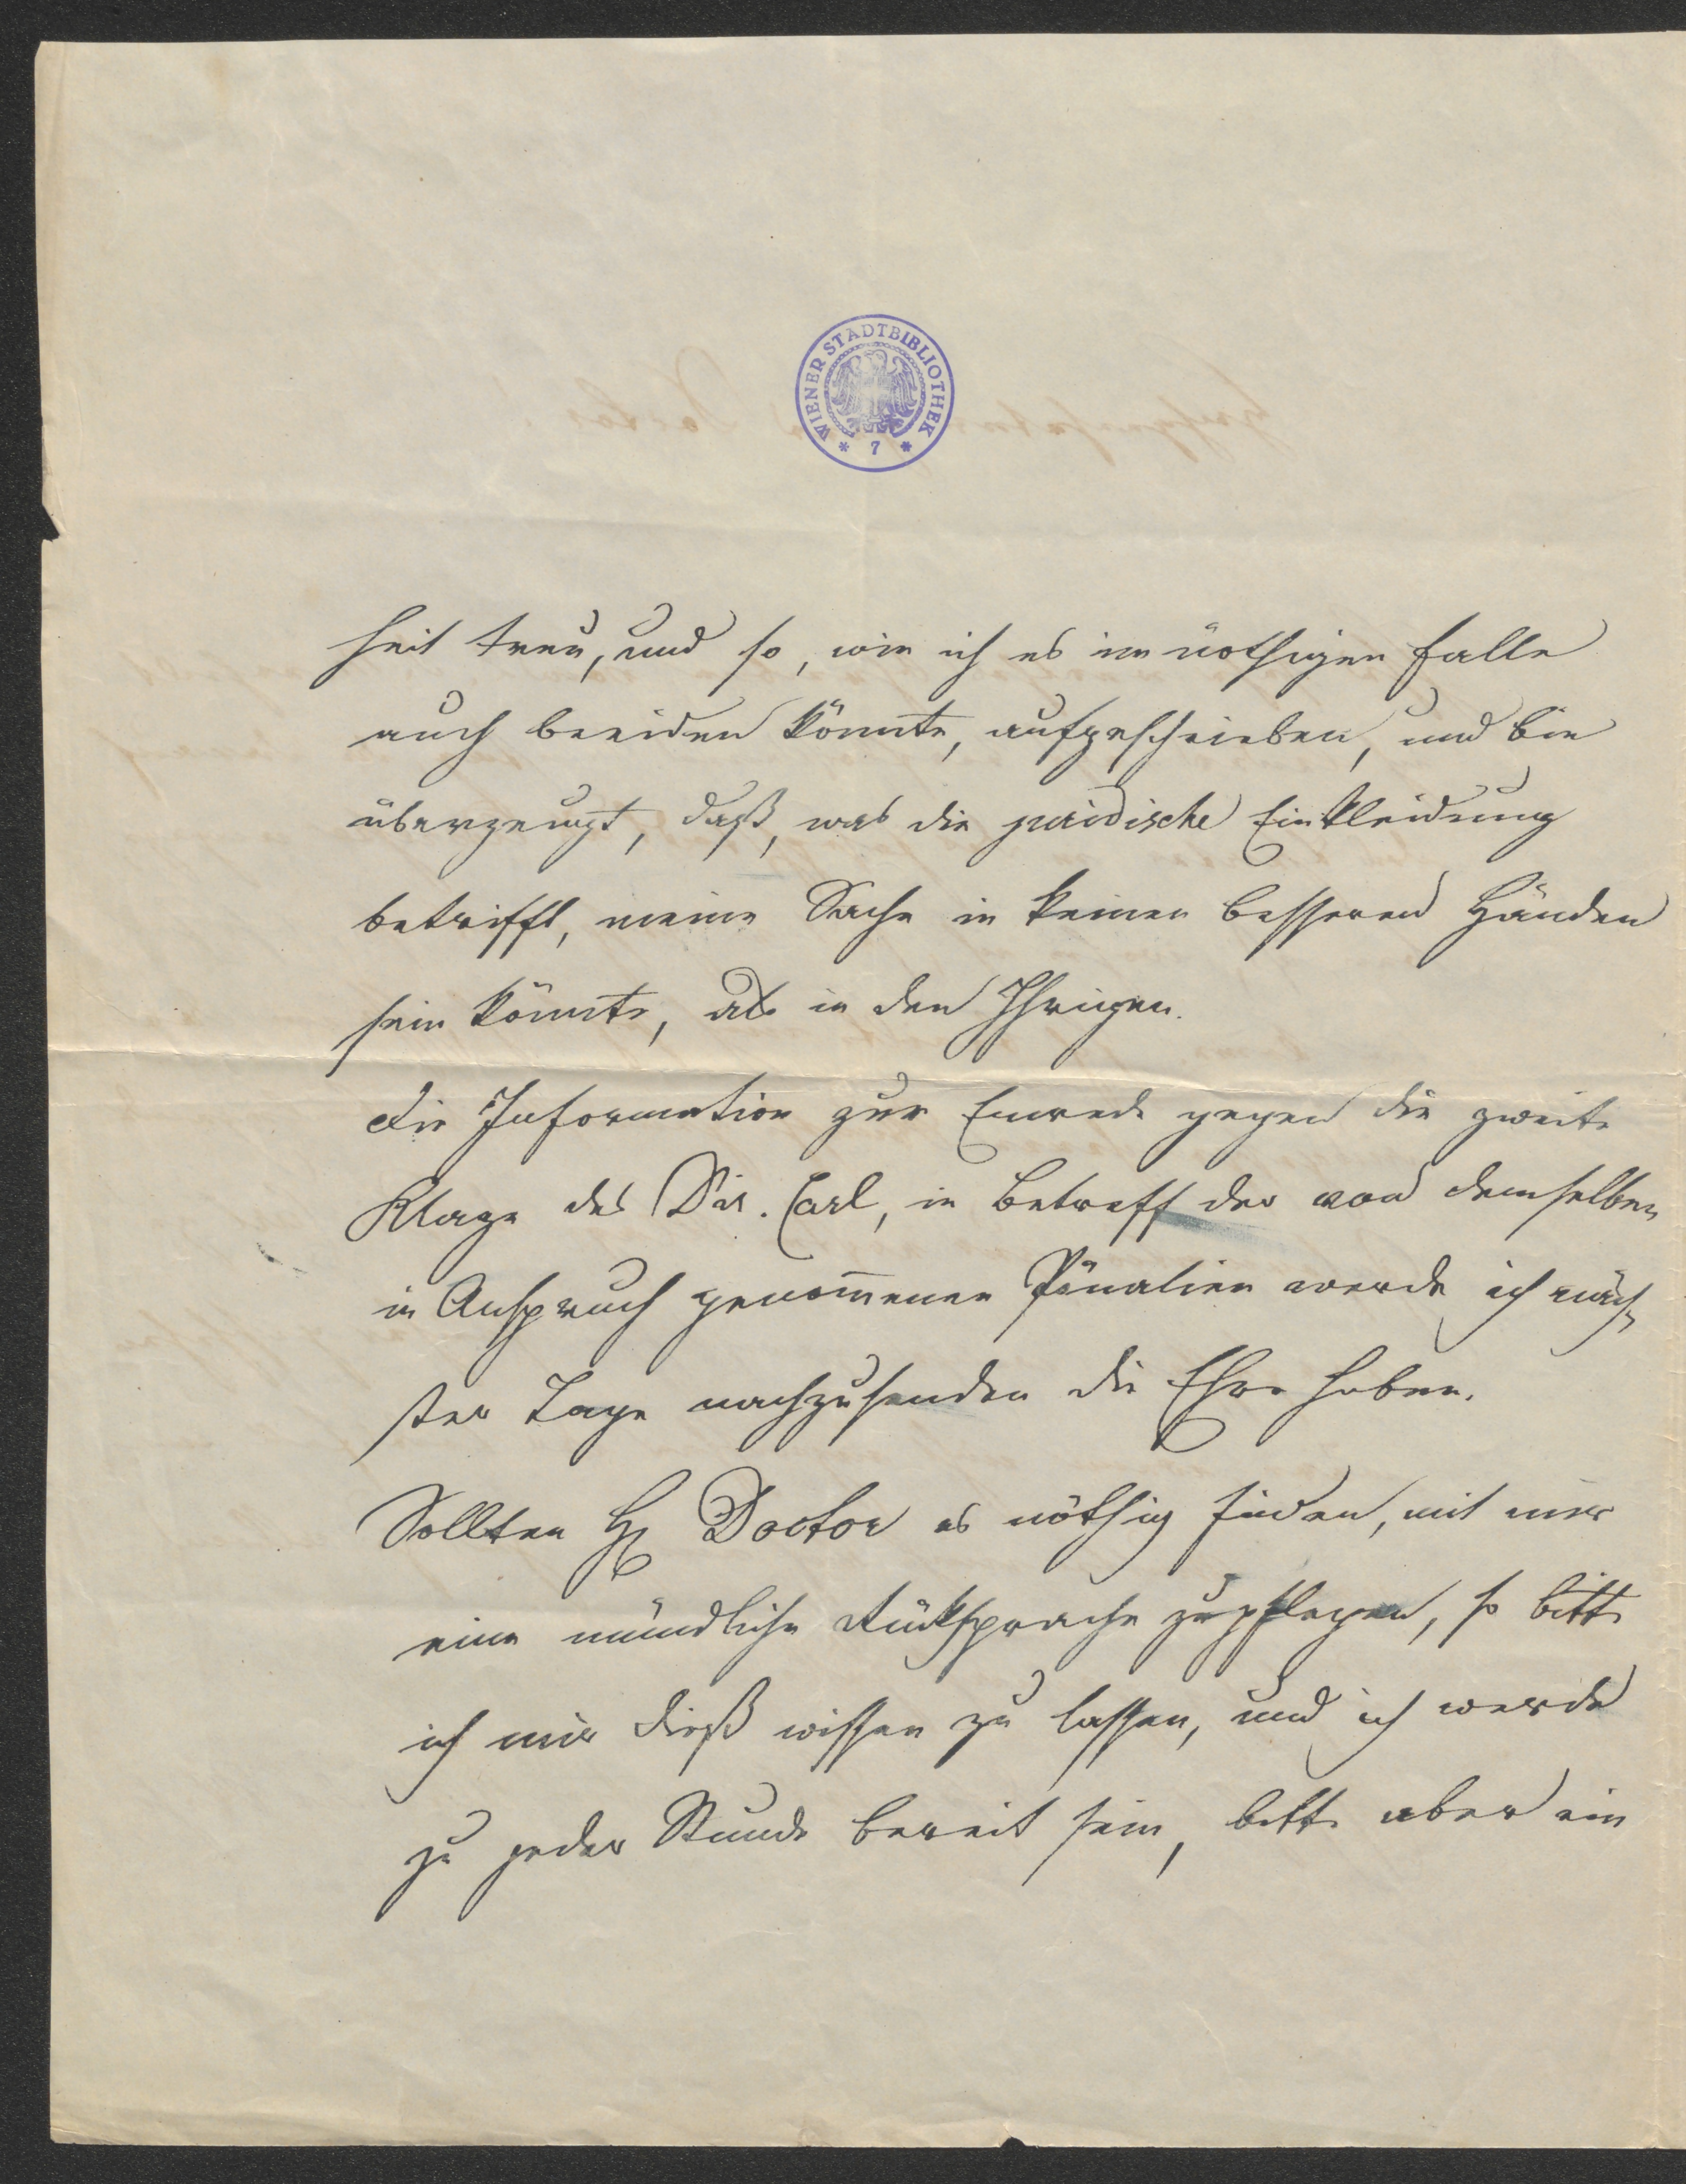 WIENER STADTBIBLIOTHEK
* 7 *
heit treu, und so, wie ich es im nöthigen Falle
auch beeiden könnte, aufgeschrieben, und bin
überzeugt, daß, was die juridische Einkleidung
betrifft, meine Sache in keinen besseren Händen
sein könnte, als in den Ihrigen.
Die Information zur Einrede gegen die zweite
Klage des Dir. Carl, in Betreff der von demselben
in Anspruch genom̄enen Pönalien werde ich näch-
ster Tage nachzusenden die Ehre haben.
Sollten H Doctor es nöthig finden, mit mir
eine mündliche Rücksprache zu pflegen, so bitte
ich mir dieß wissen zu lassen, und ich werde
zu jeder Stunde bereit sein, bitte aber ein